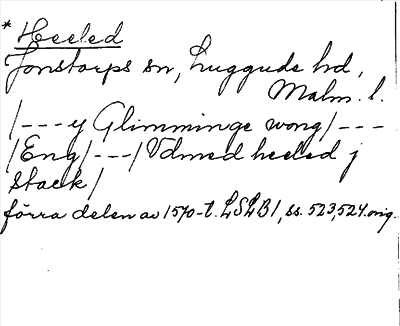 * Heeled
Jonstorps sn, Luggude hd,
Malm. l.
/---y Glimminge wong/---
/Eng/---/Vdmed heeled j
stack/
förra delen av 1570-t. LSLB1, ss. 523, 524. orig.